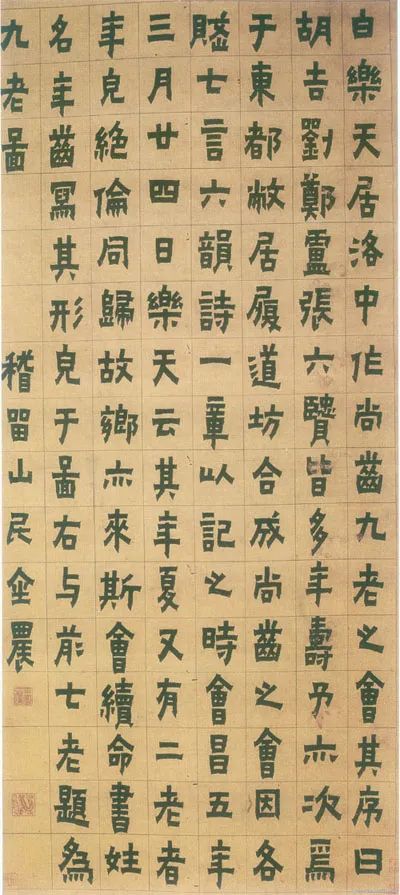 白樂天居洛中作尚齒九老之會其序曰
胡吉劉鄭盧張六賢皆多年壽予亦次焉
于東都敝居履道坊合成尚齒之會因各
賦七言六韻詩一章以記之時會昌五年
三月廿四日樂天云其年夏又有二老者
年皃絕倫同歸故鄉亦來斯會續命書姓
名年齒寫其形皃于圖右与前七老題為
九老圖 稽留山民金農